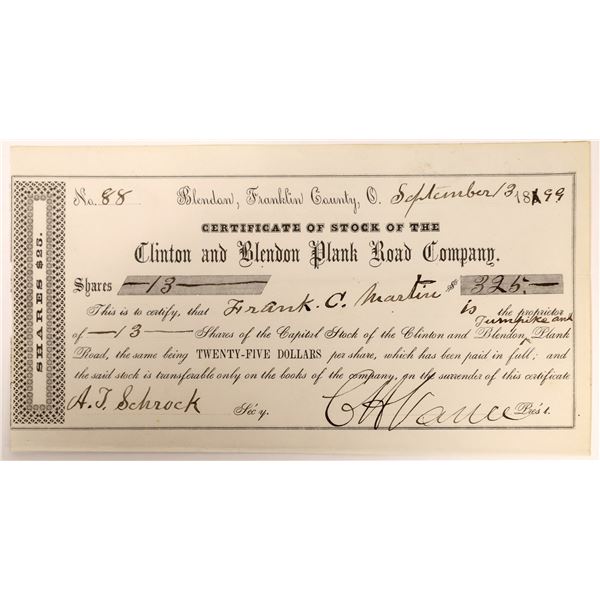 SHARES $25.
No. 88 Blendon, Franklin County, O. September 13 1899
CERTIFICATE OF STOCK OF THE
Clinton and Blendon Plank Road Company.
Shares —13— $ 325.—
This is to certify, that Frank. C. Martin is the proprietor
Turnpike and
of —13— Shares of the Capital Stock of the Clinton and Blendon Plank
Road, the same being TWENTY-FIVE DOLLARS per share, which has been paid in full; and
the said stock is transferable only on the books of the company, on the surrender of this certificate
A. T. Schrock Sec'y. C H Vance Pres't.